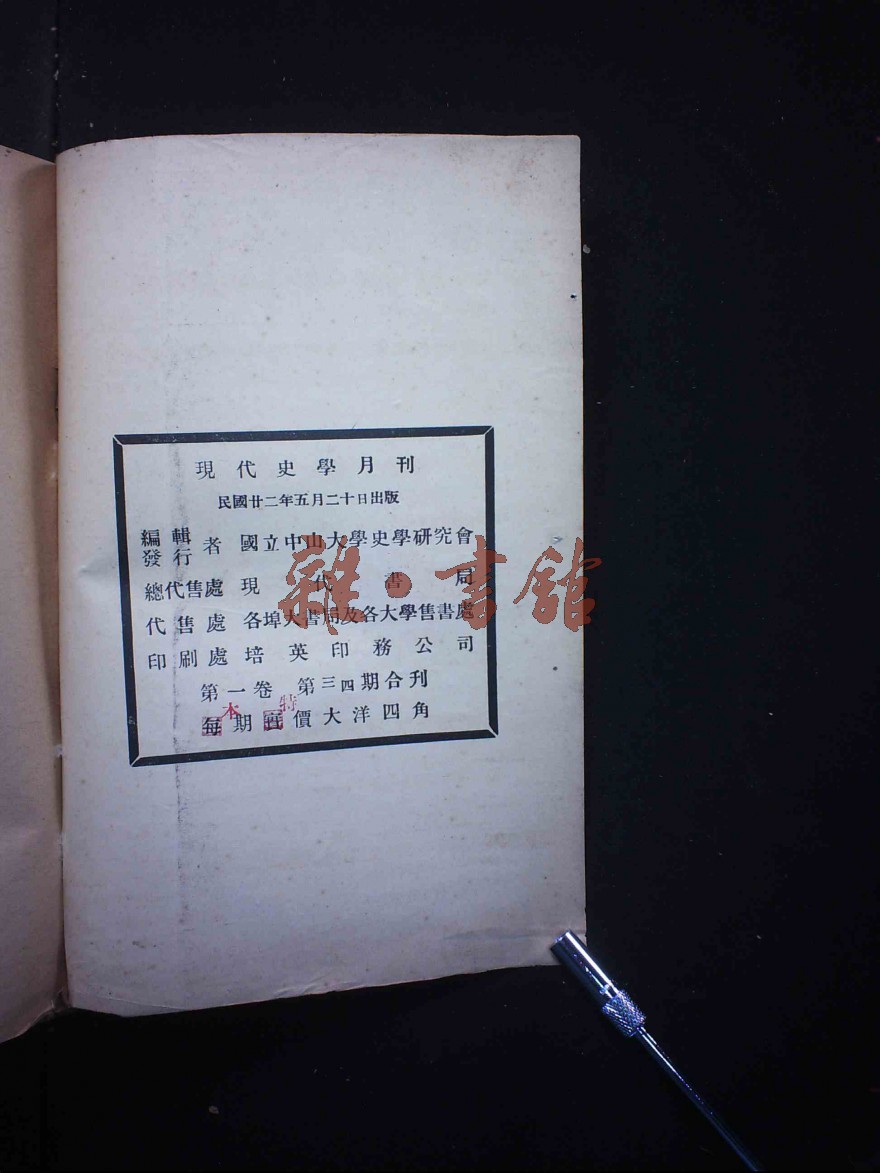 現代史學月刊
民國廿二年五月二十日出版
編輯發行者 國立中山大學史學研究會
總代售處 現代書局
代售處 各埠大書局及各大學售書處
印刷處 培英印務公司
第一卷 第三四期合刊
本 特
每期實價大洋四角
雜·書館